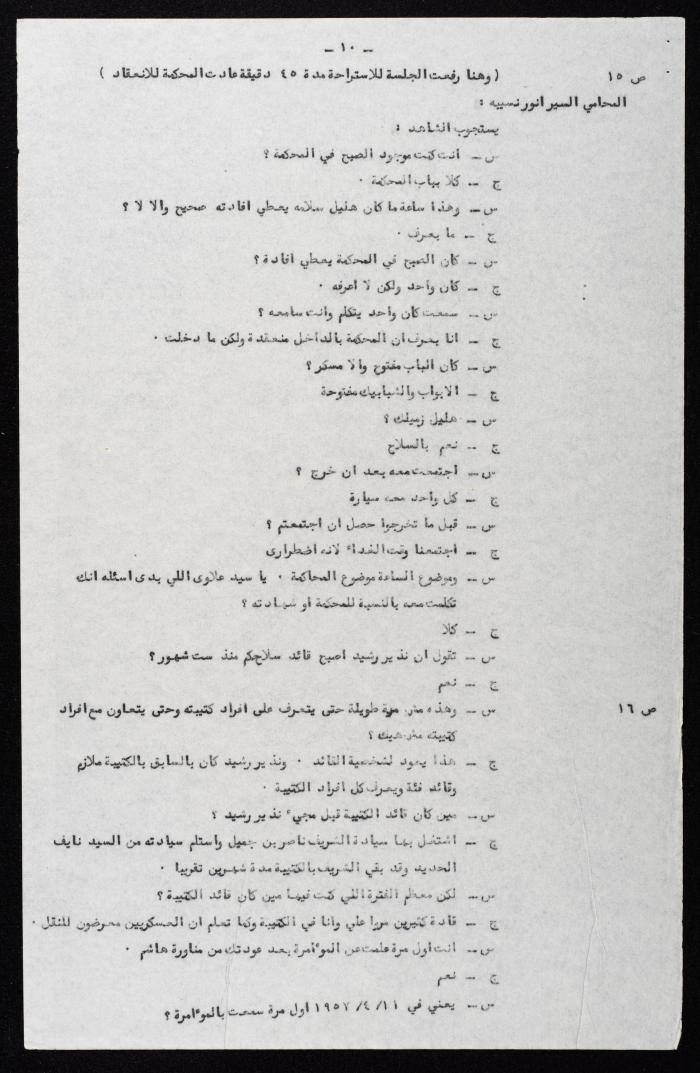 - ١٠ -
ص ١٥ ( وهنا رفعت الجلسة للاستراحة مدة ٤٥ دقيقة عادت المحكمة للانعقاد )
المحامي السيد انور نسيبه :
يستجوب الشاهد :
س - انت كنت موجود الصبح في المحكمة ؟
ج - كلا بباب المحكمة .
س - وهذا ساعة ما كان هليل سلامه يعطي افادته صحيح والا لا ؟
ج - ما بعرف .
س - كان الصبح في المحكمة يعطي افادة ؟
ج - كان واحد ولكن لا اعرفه .
س - سمعت كان واحد يتكلم وانت سامعه ؟
ج - انا بعرف ان المحكمة بالداخل منعقدة ولكن ما دخلت .
س - كان الباب مفتوح والا مسكر ؟
ج - الابواب والشبابيك مفتوحة
س - هليل زميلك ؟
ج - نعم بالسلاح
س - اجتمعت معه بعد ان خرج ؟
ج - كل واحد معه سيارة
س - قبل ما تخرجوا حصل ان اجتمعتم ؟
ج - اجتمعنا وقت الغداء لانه اضطرارى
س - وموضوع الساعة موضوع المحاكمة . يا سيد علاوى اللي بدى اسئله انك
تكلمت معه بالنسبة للمحكمة او شهادته ؟
ج - كلا
س - تقول ان نذير رشيد اصبح قائد سلاحكم منذ ست شهور ؟
ج - نعم
ص ١٦ س - وهذه مش مدة طويلة حتى يتعرف على افراد كتيبته وحتى يتعاون مع افراد
كتيبته مش هيك ؟
ج - هذا يعود لشخصية القائد . ونذير رشيد كان بالسابق بالكتيبة ملازم
وقائد فئة ويعرف كل افراد الكتيبة .
س - مين كان قائد الكتيبة قبل مجيء نذير رشيد ؟
ج - اشتغل بها سيادة الشريف ناصر بن جميل واستلم سيادته من السيد نايف
الحديد وقد بقي الشريف بالكتيبة مدة شهرين تقريبا .
س - لكن معظم الفترة اللي كنت فيها مين كان قائد الكتيبة ؟
ج - قادة كثيرين مروا علي وانا في الكتيبة وكما تعلم ان العسكريين معرضون للنقل .
س - انت اول مرة علمت عن الموءامرة بعد عودتك من مناورة هاشم .
ج - نعم
س - يعني في ١١/ ٤/ ١٩٥٧ اول مرة سمعت بالموءامرة ؟